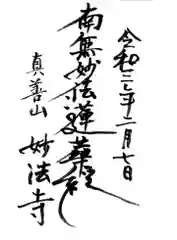 令和二年二月七日
南無妙法蓮華経
真善山
妙法寺